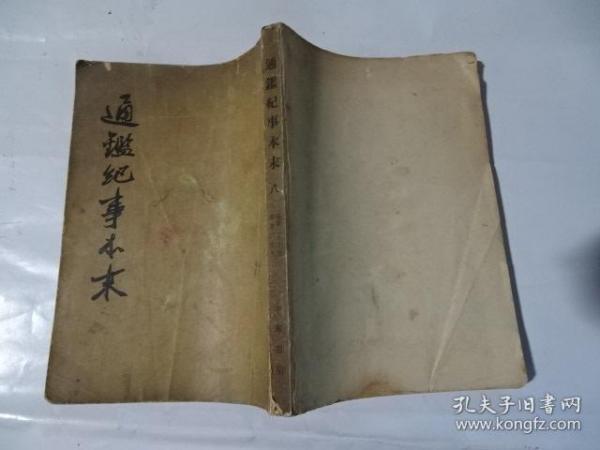 通鑑紀事本末
通鑑紀事本末 八
孔夫子旧书网
www.kongfz.com